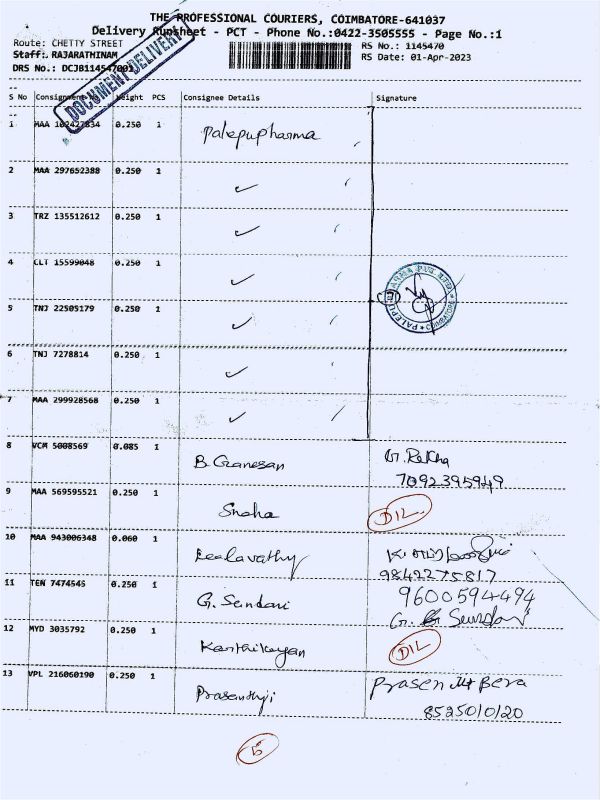 THE PROFESSIONAL COURIERS, COIMBATORE-641037
Delivery Runsheet - PCT - Phone No.:0422-3505555 - Page No.:1
Route: CHETTY STREET
RS No.: 1145470
Staff: RAJARATHINAM
RS Date: 01-Apr-2023
DRS No.: DCJB114547001
DOCUMENT DELIVERY
S No Consignment Weight PCS Consignee Details Signature
1 MAA 102427834 0.250 1 Palepupharma
2 MAA 297652388 0.250 1 ✓
3 TRZ 135512612 0.250 1 ✓
4 CLT 15599048 0.250 1 ✓
PALEPU PHARMA PVT COIMBATORE
5 TNJ 22505179 0.250 1 ✓
6 TNJ 7278814 0.250 1 ✓
7 MAA 299928568 0.250 1 ✓
8 VCM 5008569 0.085 1 B. Ganesan G. Rekha
7092395949
9 MAA 569595521 0.250 1 Snaha D/L
10 MAA 943006348 0.060 1 Leelavathy
9842275817
11 TEN 7474545 0.250 1 G. Sundari 9600594494
G. Sundari
12 MYD 3035792 0.250 1 Karthikeyan D/L
13 VPL 216060190 0.250 1 Prasanthji Prasenjit Bera
8525010120
5